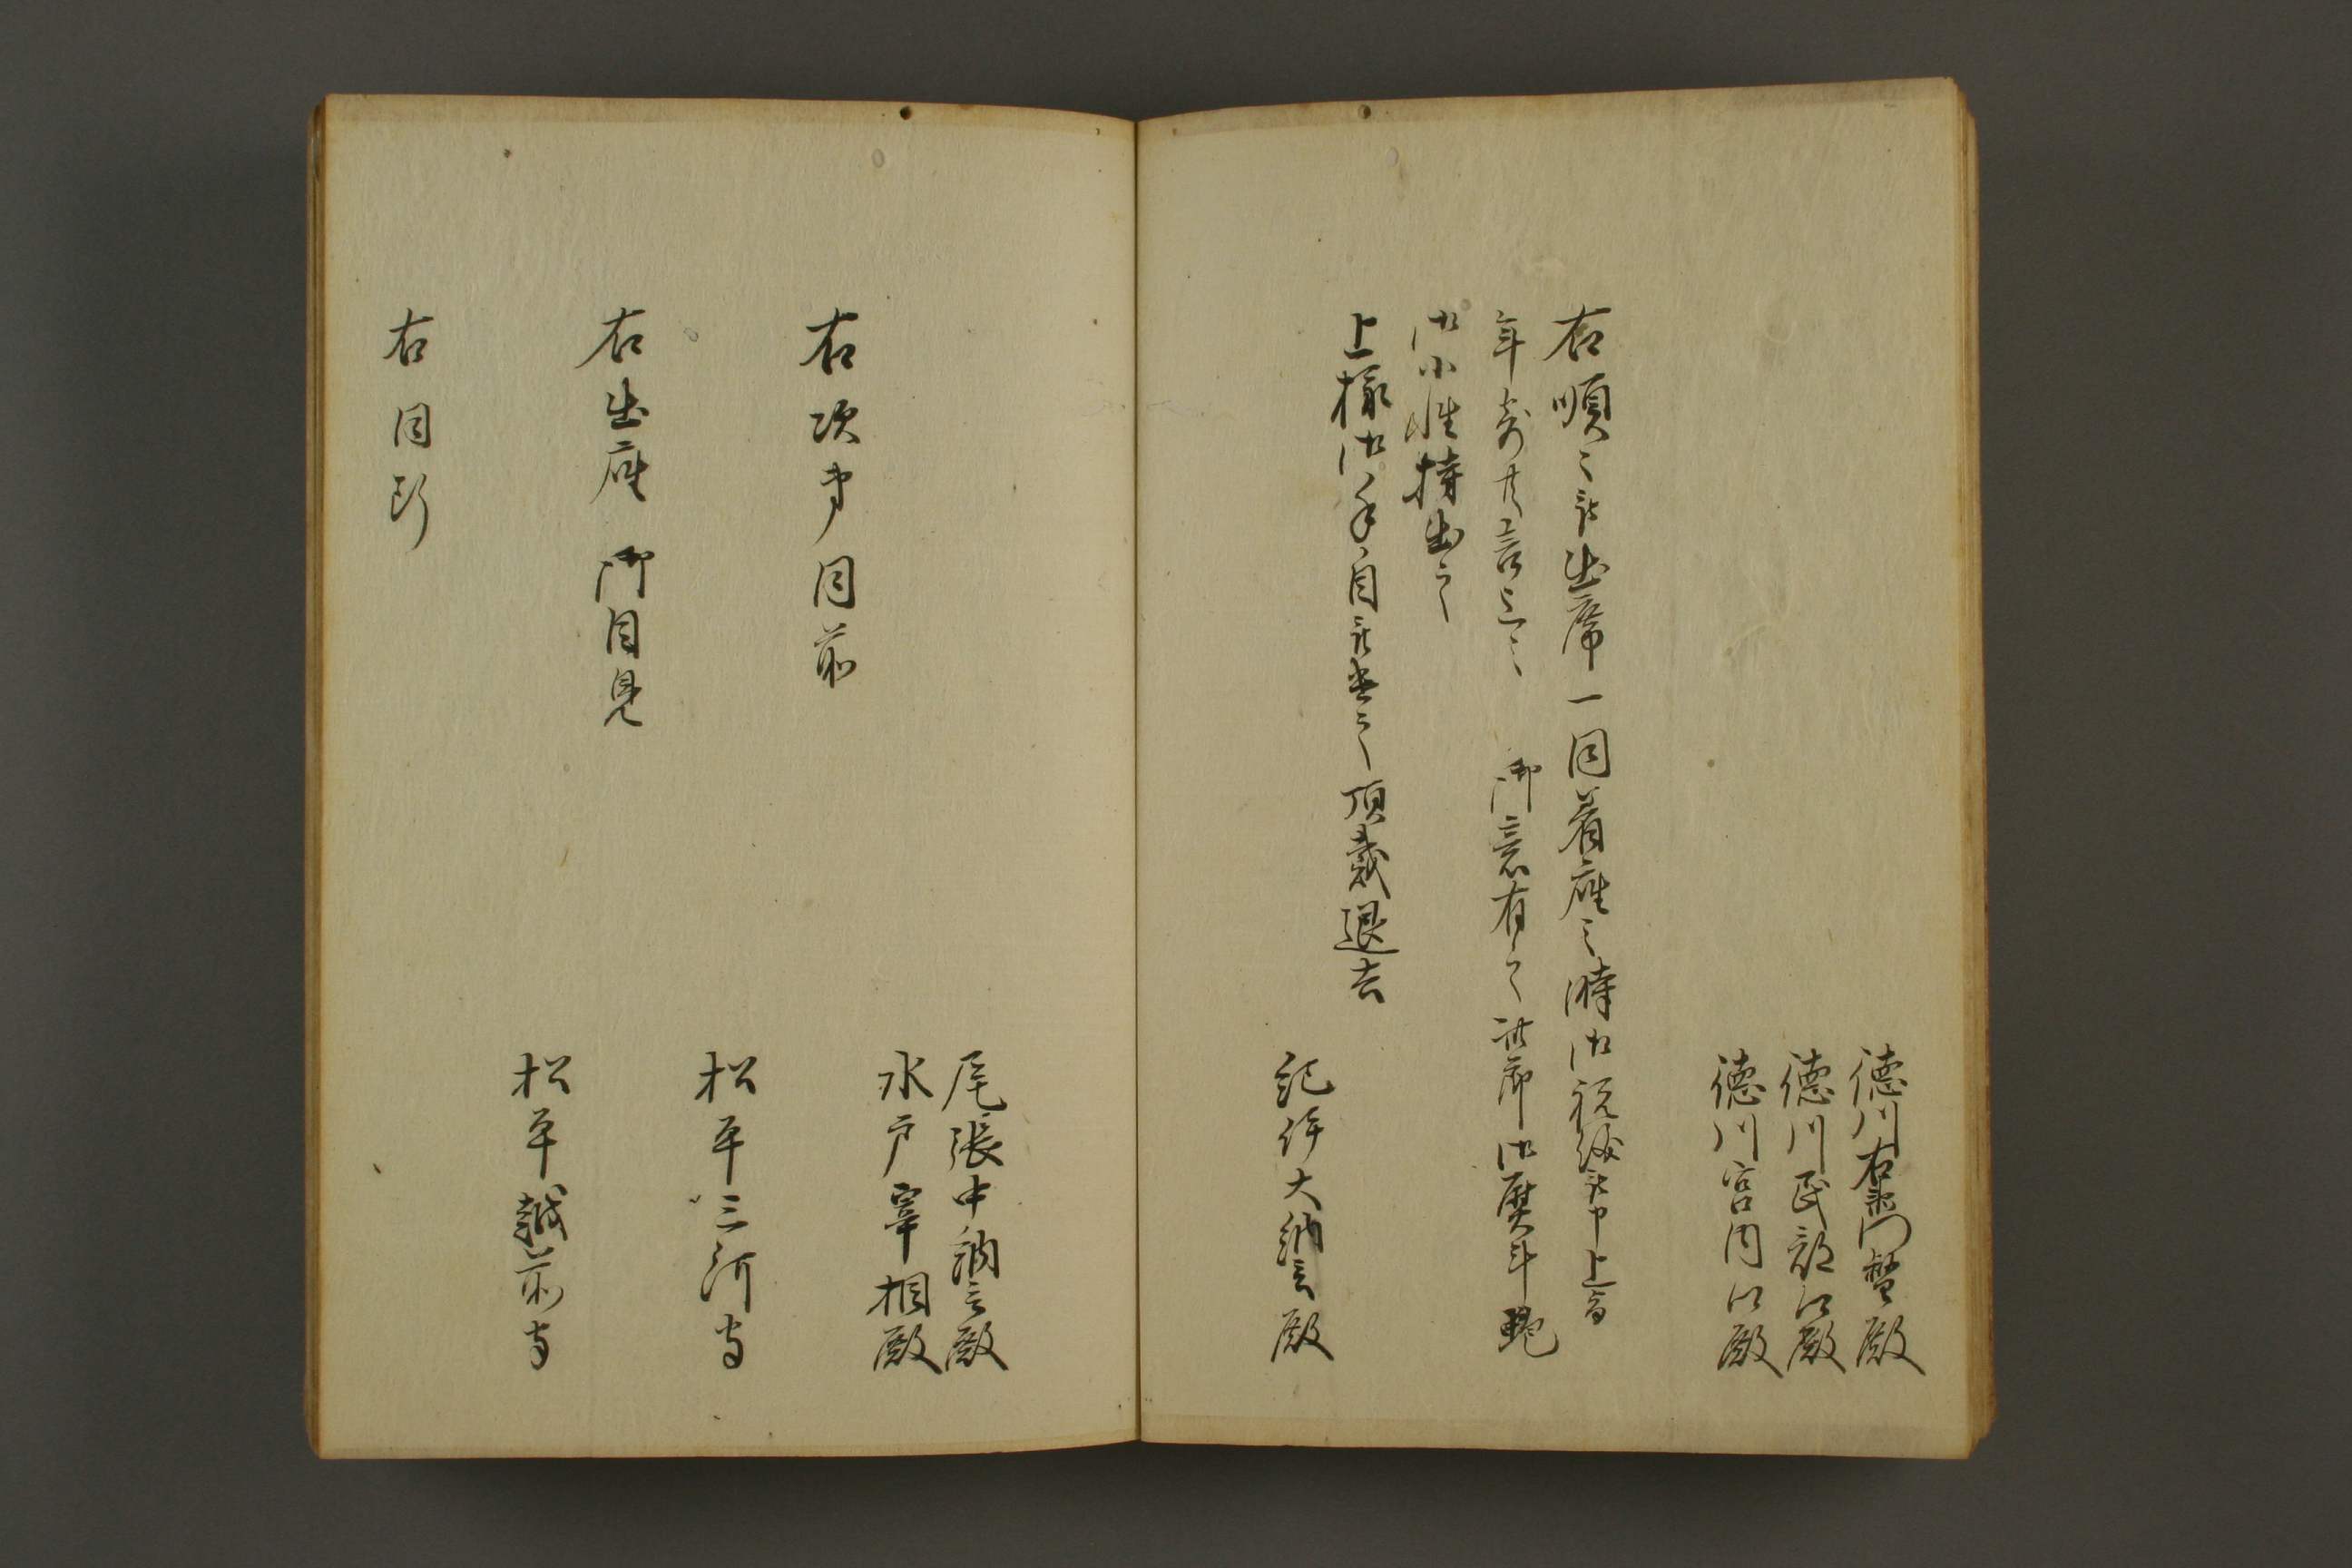 徳川右衛門督殿
徳川民部卿殿
徳川宮内卿殿
右順々被出席一同着座之時御祝儀被申上旨
年寄共言上之　御意有之此節御熨斗鮑
御小性持出之
上様御手自被進之頂戴退去
紀伊大納言殿
尾張中納言殿
水戸宰相殿
右次第同前
松平三河守
右出座　御目見
松平越前守
右同断